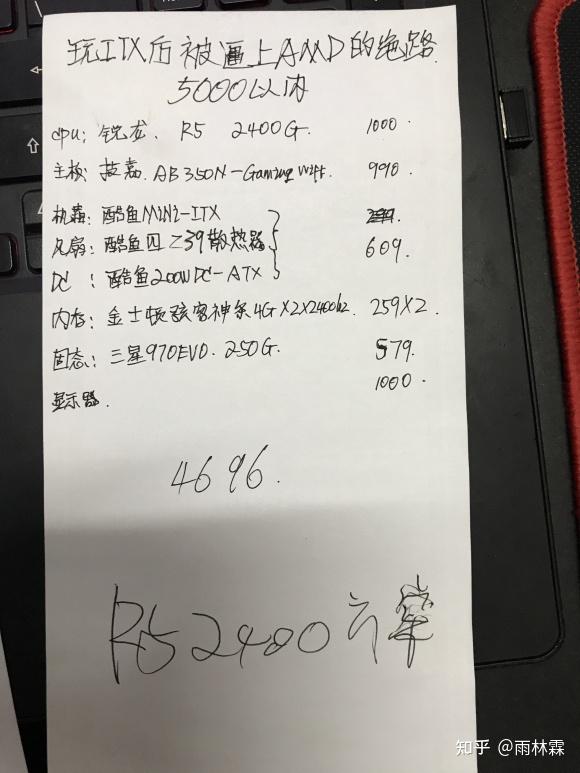 玩ITX后被逼上AMD的绝路.
5000以内
cpu: 锐龙. R5 2400G. 1000.
主板: 技嘉. AB350N-Gaming wifi. 990.
机箱: 酷鱼MINI-ITX
风扇: 酷鱼四 Z39散热器 609.
DC: 酷鱼200W DC-ATX
内存: 金士顿骇客神条4G×2×2400hz. 259×2.
固态: 三星970EVO. 250G. 579.
显示器. 1000.
4696.
R5 2400 方案
知乎 @雨林霖